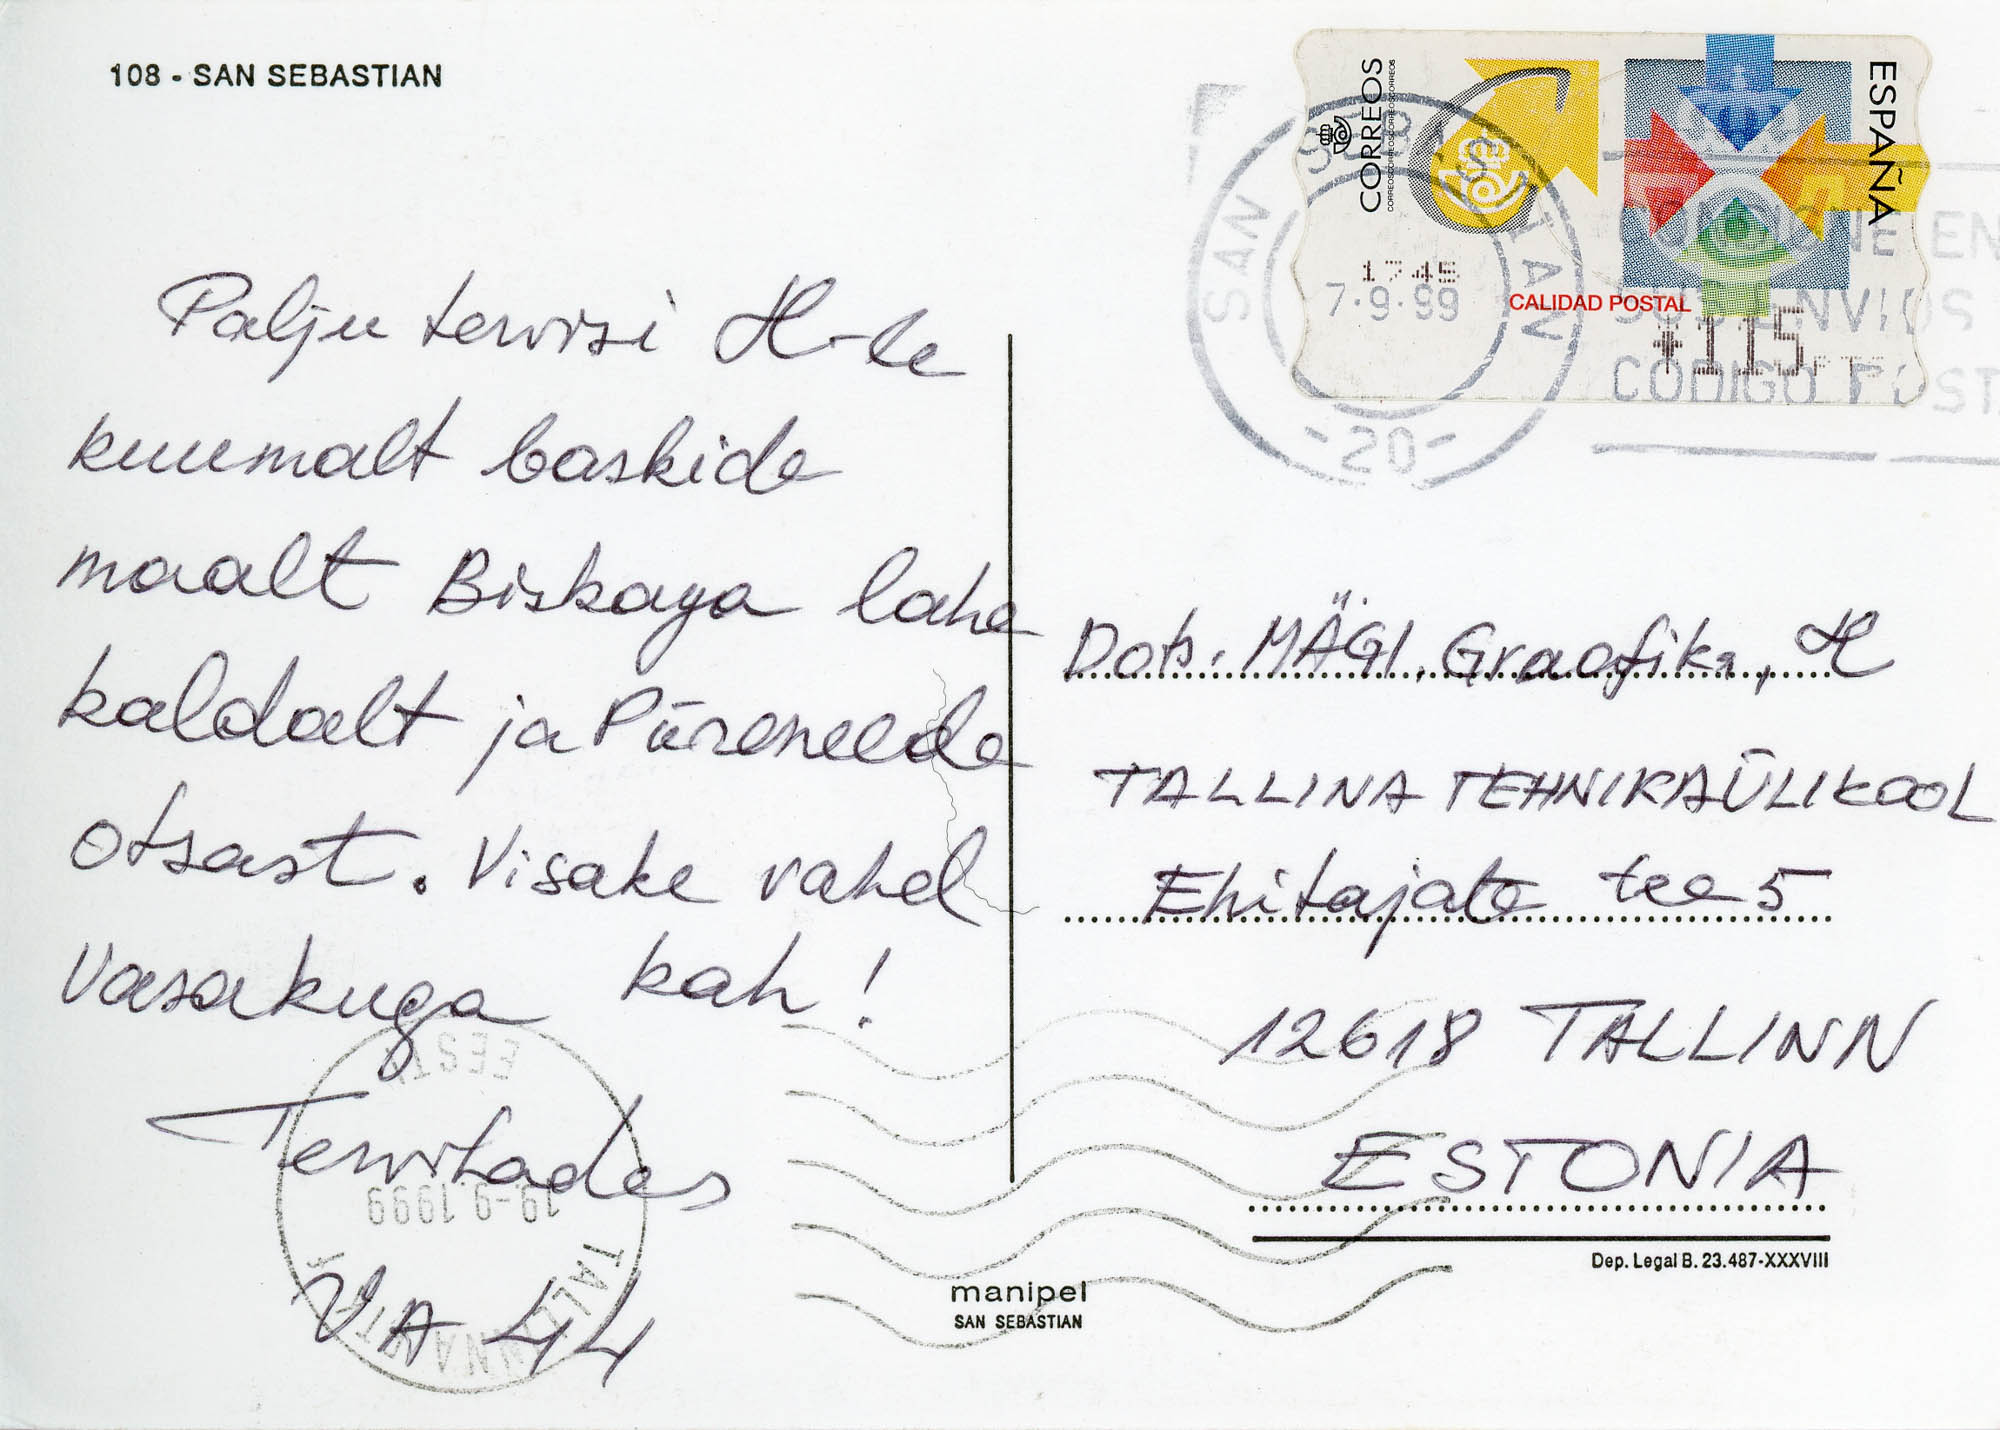 108 - SAN SEBASTIAN
CORREOS
ESPAÑA
SAN SEBASTIAN
1745
7·9·99
-20-
CALIDAD POSTAL
*115 PTS
CONSIGNE EN
SUS ENVIOS
CODIGO POST
Palju tervisi H-le
kuumalt baskide
maalt Biskaya lahe
kaldalt ja Püreneede
otsast. Visake vahel
vasakuga kah!
Tervitades
VA 44
Dots. MÄGI. Graafika, H
TALLINA TEHNIKAÜLIKOOL
Ehitajate tee 5
12618 TALLINN
ESTONIA
Dep. Legal B. 23.487-XXXVIII
manipel
SAN SEBASTIAN
EESTI
19.-9.1999